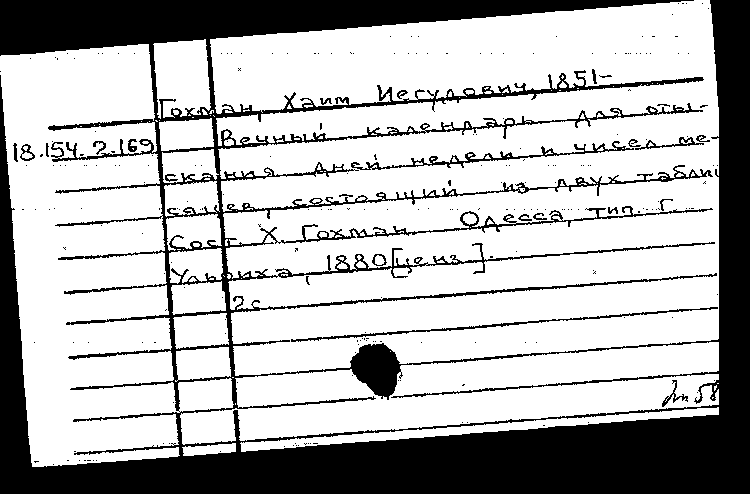 Гохман, Хаим Иегудович, 1851-
18.154.2.169
Вечный календарь для оты-
скания дней недели и чисел ме-
сяцев, состоящий из двух таблиц
Сост. Х. Гохман. Одесса, тип. Г.
Ульриха, 1880 [ценз].
2 с
58